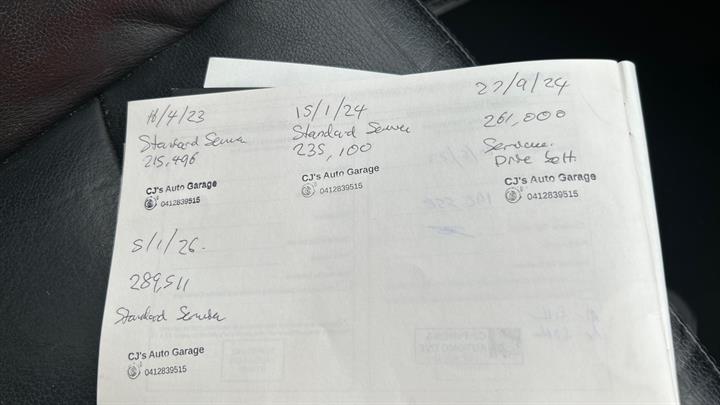 18/4/23
Standard Service
215,496
CJ's Auto Garage
0412839515
15/1/24
Standard Service
235,100
CJ's Auto Garage
0412839515
27/9/24
261,000
Service.
Drive belt.
CJ's Auto Garage
0412839515
5/1/26.
289,511
Standard Service
CJ's Auto Garage
0412839515